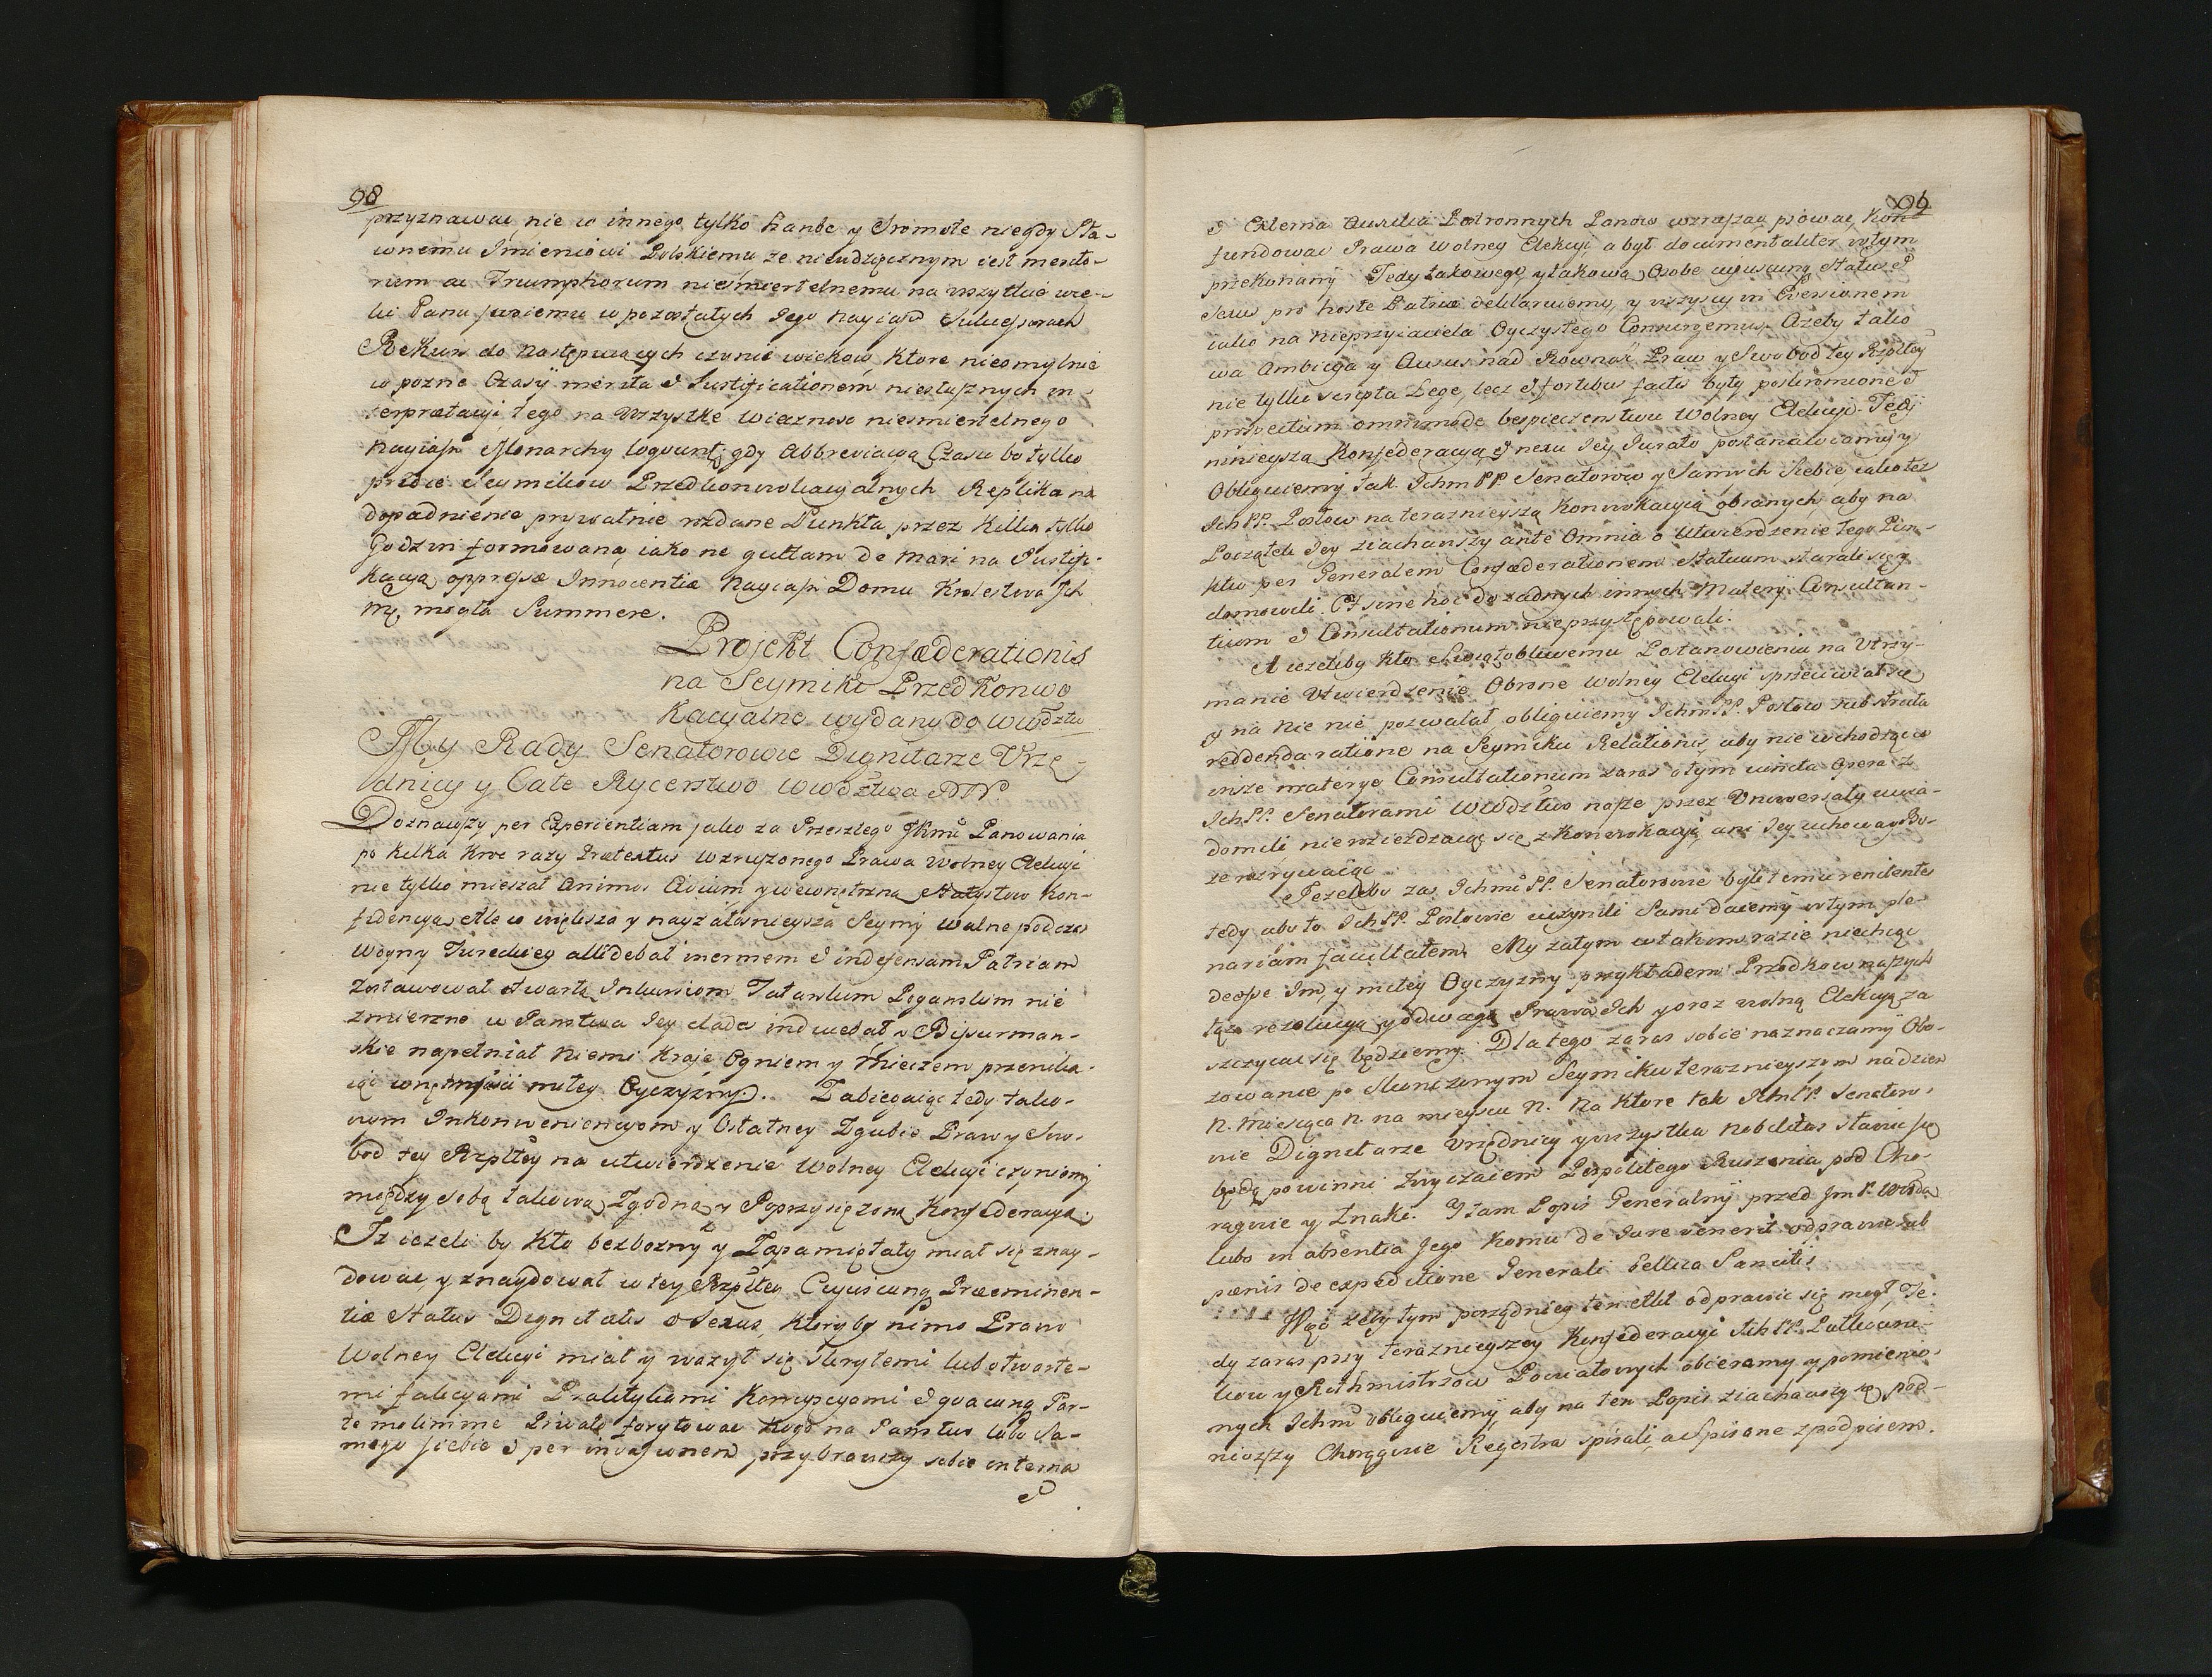 98
przyznawac nie co innego tylko hanbe y Sromote niegdy Sła-
wnemu Imieniowi Polskiemu ze niewdzięcznym iest merito-
rum ac Triumphorum niesmiertelnemu na wszytkie wie-
ki Panu swoiemu w pozostałych Iego Nayiasn Sukcessorach
Rekurs do następuiących czynić wiekow, ktore nieomylnie
w pozne Czasy merita et Iustificationem niesłusznych in-
terpretacyi, tego na Wszystkę Wiecznosc niesmiertelnego
Nayiasn Monarchy loquuntur gdy Abbreviacya Czasu bo tylko
Seymikow Przedkonwokacyalnych Replika na
dopadnienie prywatnie rozdane Punkta przez kilka tylko
Godzin formowana, iako ne guttam de mari na Iustifi-
kacyą oppressæ Innocentiæ Nayiasn Domu Krolestwa Ich
mć mogła Summere.
Projekt Confæderationis
na Seymiki Przed Konwo
Kacyalne wydany do Wwodztw
My Rady Senatorowie Dignitarze Vrzę-
dnicy y Całe Rycerstwo Wwodztwa NN.
Doznawszy per Experientiam jako za Przeszłego JKmci Panowania
po kilka kroc razy Prætextus Wzruszonego Prawa Wolney Elekcyi
nie tylko mieszał Animos Civium y wewnętrzną Statystow Kon-
fidencyą Ale co większa y nayżałosnieysza Seymy walne podczas
Woyny Tureckiey allidebat inermem et indefensam Patriam
Zostawował otwartą Inkursiom Tatarskim Poganskim nie
zmierzne w Panstwa Iey clades inducebat, y Bisurman-
skie napełniał Niemi Kraje Ogniem y Mieczem przenika-
iąc wnętrznosci miłey Oyczyzny. Zabiegaiąc tedy tako-
wym Inkonweniencyom y Ostatney Zgubie Praw y Swo-
bod tey Rzplltey na utwierdzenie Wolney Elekcyi czyniemy
między sobą takową Zgodną y Poprzysięzoną Konfederacyą.
Iz iezeli by kto bezbozny y Zapamiętały miał się znay-
dowac, y znaydował w tey Rzplltey Cujuscunq Præeminen-
tiæ Status Dignitatis et Sexus, ktoryby nimo Prawo
Wolney Elekcyi miał y wazył się skrytemi lub otwarte-
mi fakcyami Praktykami Korrupcyami et quacunq Par-
te molimine Privato forytowac kogo na Panstwo lubo Sa-
mego siebie et per invasionem przybrawszy sobie interna
et
99
et Externa Auxilia Postronnych Panow wzruszac psowac, Kon-
fundowac Prawa Wolney Elekcyi a był documentaliter w tym
przekonany Tedy takowego, y takową Osobe cujuscunq Status et
Sexus pro hoste Patriæ deklaruiemy, y wszyscy in Eversionem
iako na nieprzyiaciela Oyczystego Consurgemus. Azeby tako
wa Ambicya y Ausus nad Rownosc Praw y Swobod tey Rzplltey
nie tylko scripta Lege, lecz et fortibus factis były poskromione et
provisum omnimode bespieczenstwu Wolney Elekcyi. Tedy
ninieyszą Konfederacyą, et nexu Iey Iurato postanawiamy y
Obliguiemy tak Ichm PP. Senatorow y Samych Siebie iako tez
Ich PP. Posłow na teraznieyszą Konwokacyią obranych aby na
Początek Iey ziachawszy ante Omnia o Utwierdzenie tego Pun-
ktu per Generalem Confæderationem Statuum starali się y
domowili. Et sine hoc do zadnych innych Materyi Consultan-
tium et Consultationum nie przystępowali.
A iezeliby kto Swiątobliwemu Postanowieniu na Vtrzy-
manie Vtwierdzenie Obrone wolney Elekcyi sprzeciwiał się
y na nie nie pozwalał obliguiemy Ichm PP. Posłow sub stricta
reddenda ratione na Seymiku Relationis, aby nie wchodząc w
insze materye Consultationum zaraz o tym cuncta opera z
Ich PP. Senatorami Wwodztwo nasze przez Vniwersały uwia-
domili nierozieżdzaiąc się z Konwokacyi, ani Iey uchoway Bo-
ze rozrywaiąc.
Jezeliby zas Ichmc PP. Senatorowie byli temu renitentes
tedy aby to Ich PP. Posłowie uczynili Sami daiemy w tym ple-
nariam facultatem. My zatym w takim razie niechcąc
deesse Im, y miłey Oyczyzny przykładem Przodkow naszych
tąz rezolucyą y odwagą Prawa Ich y oraz wolną Elekcyą za
szczycac się będziemy. Dla tego zaraz sobie naznaczamy Obo-
zowanie po skonczonym Seymiku teraznieyszym na dzien
N. miesiąca N. na mieyscu N. Na ktore tak Ichm PP. Senatoro-
wie Dignitarze Vrzędnicy y wszystka Nobilitas stawic się
będą powinni zwyczaiem Pospolitego Ruszenia pod Cho-
rągwie y Znaki. Y tam Popis Generalny przed Jm P. Wwodą
lubo in absentia Jego komu de Iure venerit odprawic sub
pænis de expeditione Generali bellica Sancitis.
Więc zeby tym porządniey ten Akt odprawic się mogł, Te-
dy zaraz przy teraznieyszey Konfederacyi Ich PP. Pułkowni-
kow y Rothmistrzow Powiatowych obieramy y pomienio-
nych Ichmc obliguiemy, aby na ten Popis ziachawszy się pod-
niozszy Chorągwie Regestra spisali, a Spisane z podpisem